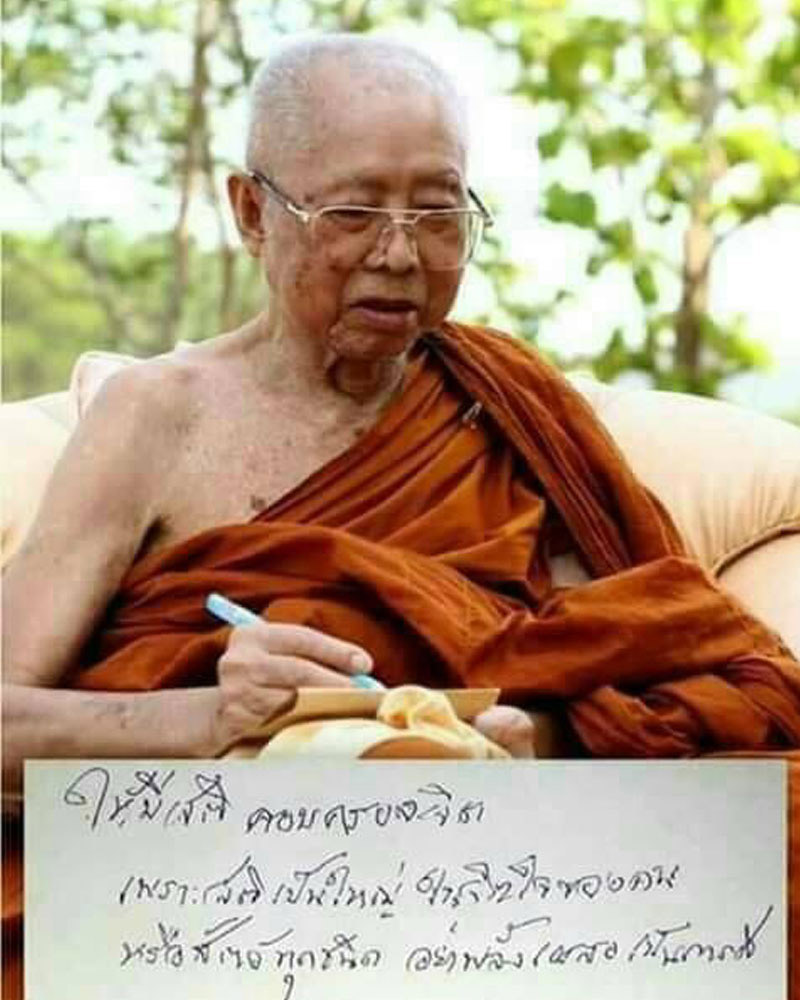 ให้มีสติ ครอบครองจิต
เพราะสติเป็นใหญ่ ในจิตใจของคน
หรือสัตว์ทุกชนิด อย่าพลั้งเผลอ เป็นการดี